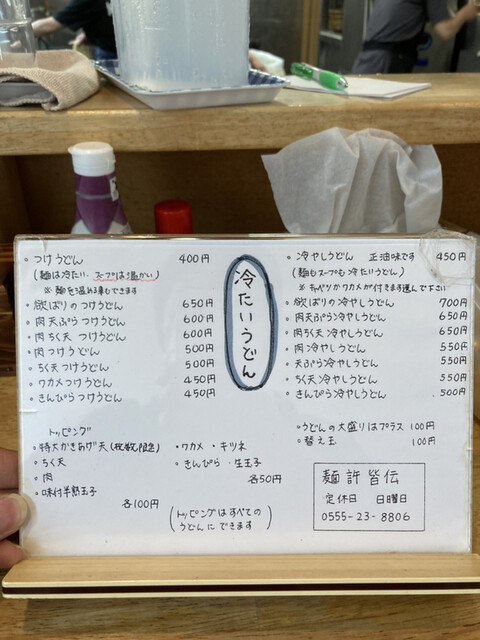 冷たいうどん
・つけうどん 400円
(麺は冷たい、スープは温かい)
※ 麺を温める事もできます
・欲ばりのつけうどん 650円
・肉天ぷらつけうどん 600円
・肉ちく天 つけうどん 600円
・肉つけうどん 500円
・ちく天つけうどん 500円
・ワカメつけうどん 450円
・きんぴらつけうどん 450円
・冷やしうどん 正油味です 450円
(麺もスープも冷たいうどん)
※ キャベツかワカメが付きます選んで下さい
・欲ばりの冷やしうどん 700円
・肉天ぷら冷やしうどん 650円
・肉ちく天冷やしうどん 650円
・肉冷やしうどん 550円
・天ぷら冷やしうどん 550円
・ちく天冷やしうどん 550円
・きんぴら冷やしうどん 500円
トッピング
・特大かきあげ天(枚数限定)
・ちく天
・肉
・味付半熟玉子
各100円
・ワカメ ・キツネ
・きんぴら ・生玉子
各50円
(トッピングはすべての
うどんにできます)
・うどんの大盛りはプラス 100円
・替え玉 100円
麺許皆伝
定休日 日曜日
0555-23-8806